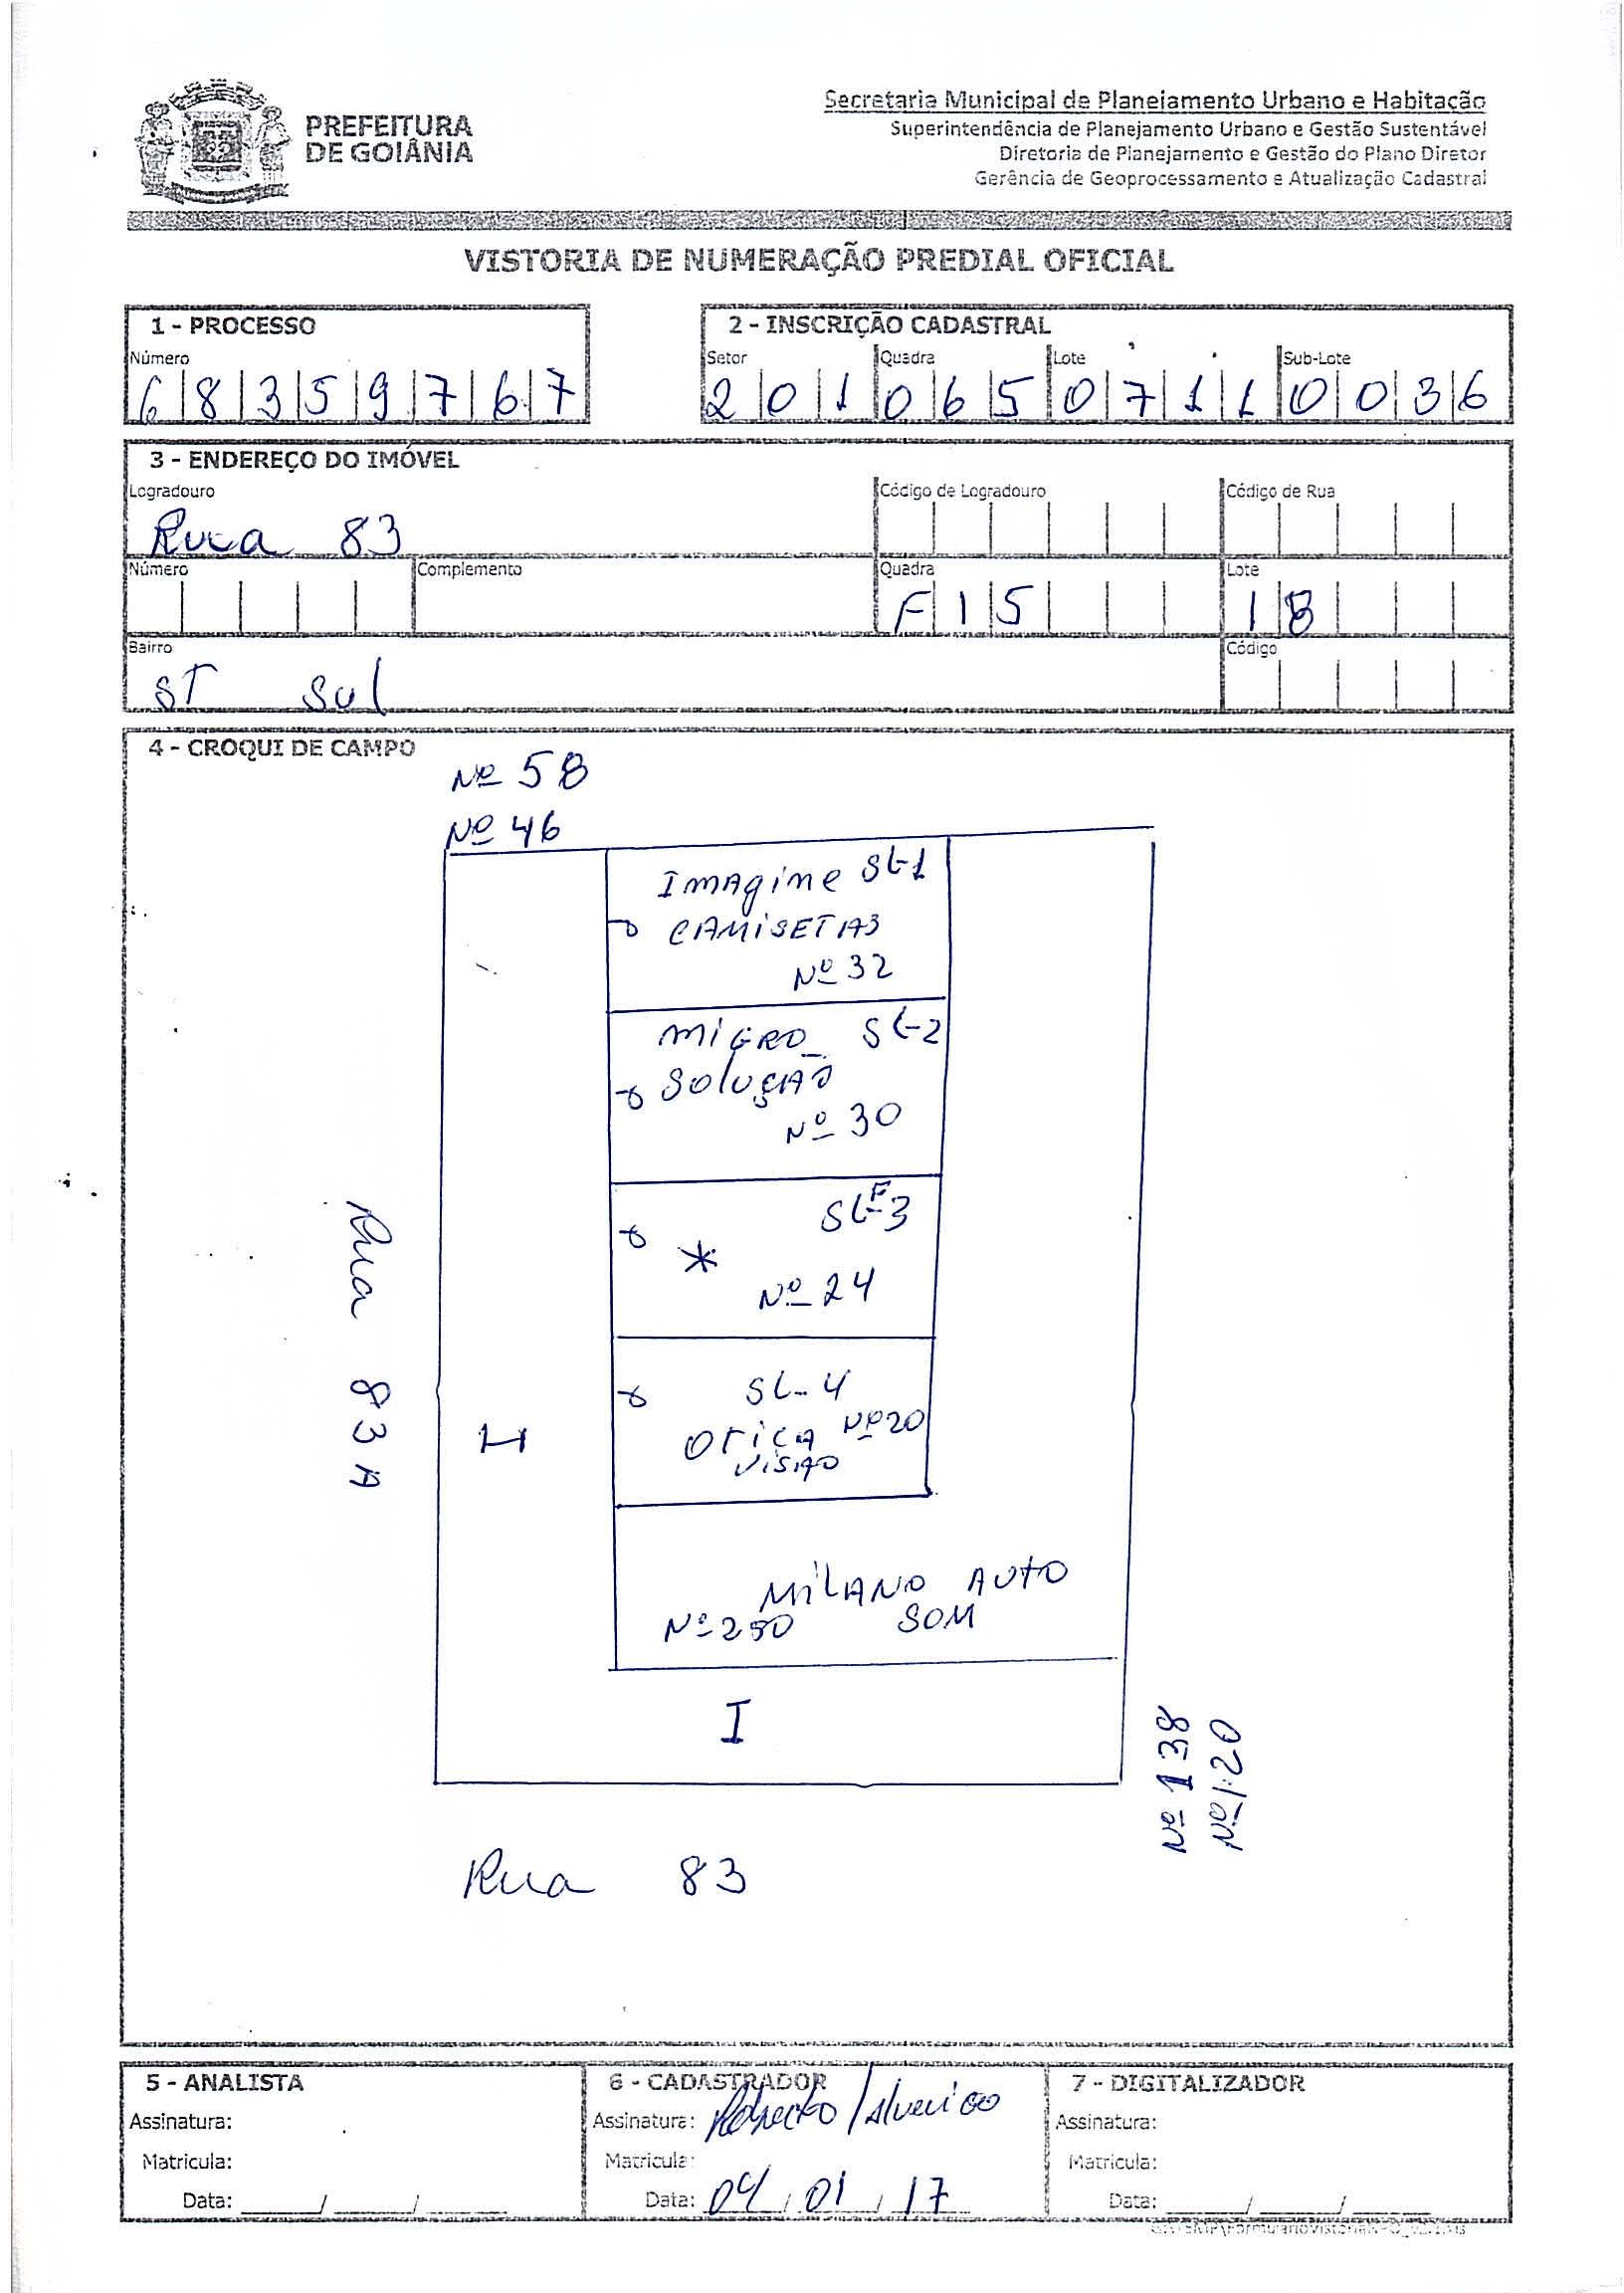 PREFEITURA
DE GOIÂNIA
Secretaria Municipal de Planejamento Urbano e Habitação
Superintendência de Planejamento Urbano e Gestão Sustentável
Diretoria de Planejamento e Gestão do Plano Diretor
Gerência de Geoprocessamento e Atualização Cadastral
VISTORIA DE NUMERAÇÃO PREDIAL OFICIAL
1 - PROCESSO
Número
68359767
2 - INSCRIÇÃO CADASTRAL
Setor Quadra Lote Sub-Lote
201 065 0711 0036
3 - ENDEREÇO DO IMÓVEL
Logradouro Código de Logradouro Código de Rua
Rua 83
Número Complemento Quadra Lote
F15 18
Bairro Código
ST Sul
4 - CROQUI DE CAMPO
Nº 58
Nº 46
IMAgine SL-1
CAMISETAS
Nº 32
MICRO SL-2
SOLUÇÃO
Nº 30
SL-3
* Nº 24
SL-4
OTICA Nº 20
VISÃO
Rua 83 A
H
MILANO AUTO
Nº 250 SOM
I
Nº 138
Nº 120
Rua 83
5 - ANALISTA
Assinatura:
Matricula:
Data: ____/____/____
6 - CADASTRADOR
Assinatura:
Matricula:
Data: 04/01/17
7 - DIGITALIZADOR
Assinatura:
Matricula:
Data: ____/____/____